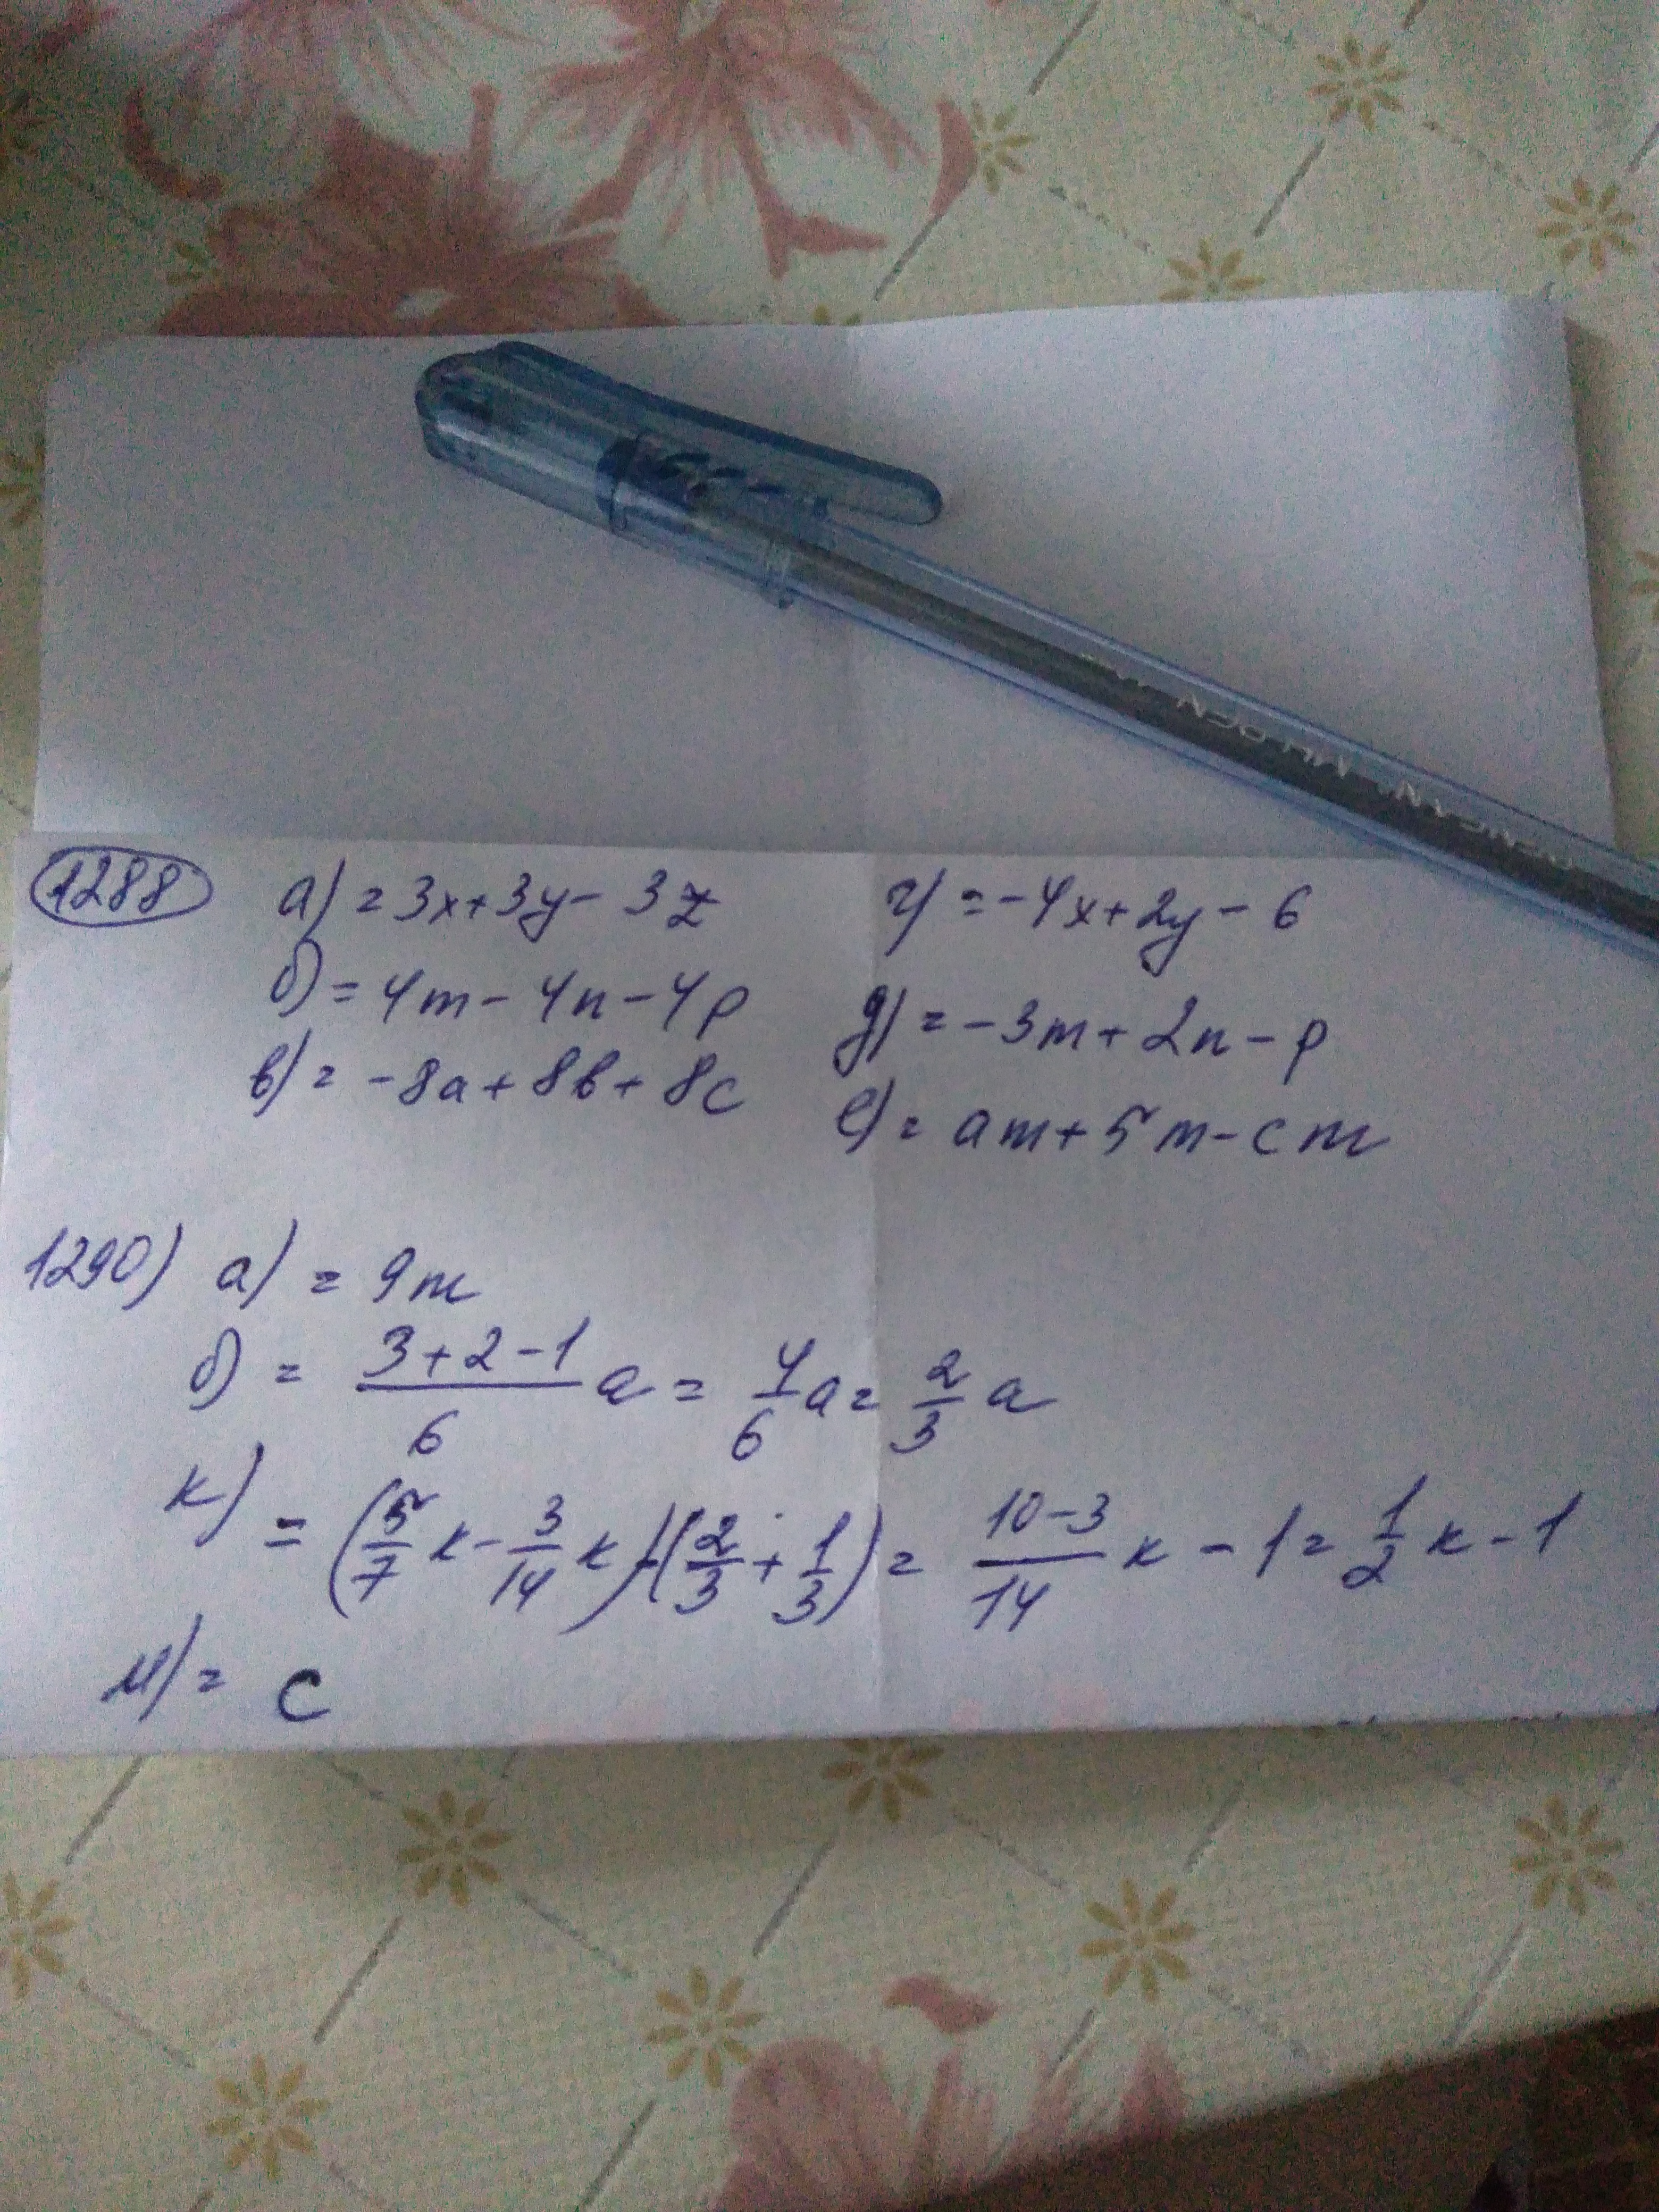 1288 а) = 3x+3y-3z г) = -4x+2y-6
б) = 4m-4n-4p д) = -3m+2n-p
в) = -8a+8b+8c е) = am+5m-cm
1290) а) = 9m
б) = (3+2-1)/6 a = 4/6 a = 2/3 a
к) = (5/7 к - 3/14 к)-(2/3+1/3) = (10-3)/14 к - 1 = 1/2 к - 1
м) = c